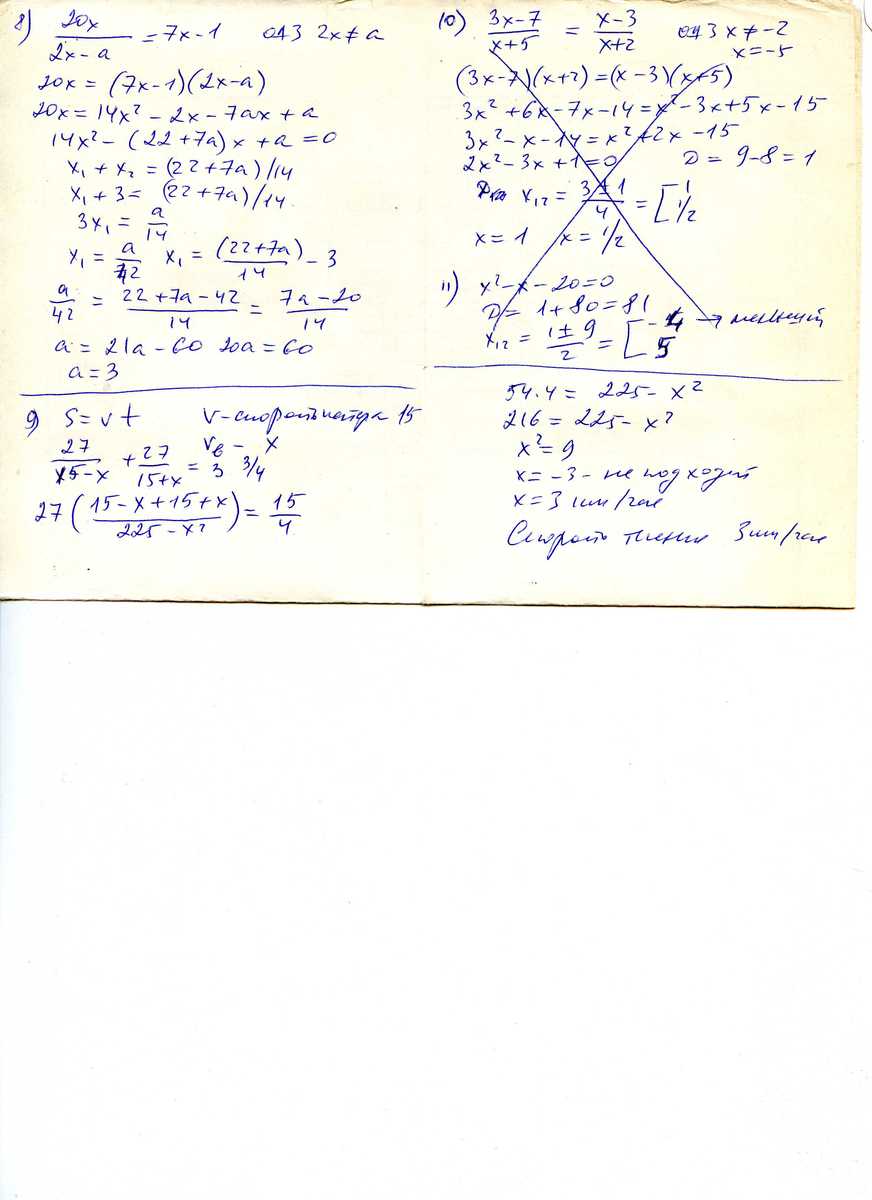 8) 20x / (2x - a) = 7x - 1 ОДЗ 2x ≠ a
20x = (7x - 1)(2x - a)
20x = 14x² - 2x - 7ax + a
14x² - (22 + 7a)x + a = 0
x₁ + x₂ = (22 + 7a)/14
x₁ + 3 = (22 + 7a)/14
3x₁ = a/14
x₁ = a/42 x₁ = (22 + 7a)/14 - 3
a/42 = (22 + 7a - 42)/14 = (7a - 20)/14
a = 21a - 60 20a = 60
a = 3
9) S = vt V - скорость катера 15
Vв - x
27/(15 - x) + 27/(15 + x) = 3 3/4
27 ((15 - x + 15 + x)/(225 - x²)) = 15/4
10) (3x - 7)/(x + 5) = (x - 3)/(x + 2) ОДЗ x ≠ -2
x = -5
(3x - 7)(x + 2) = (x - 3)(x + 5)
3x² + 6x - 7x - 14 = x² - 3x + 5x - 15
3x² - x - 14 = x² + 2x - 15
2x² - 3x + 1 = 0 D = 9 - 8 = 1
x₁₂ = (3 ± 1)/4 = [1 1/2
x = 1 x = 1/2
11) x² - x - 20 = 0
D = 1 + 80 = 81
x₁₂ = (1 ± 9)/2 = [-4 → меньший
5
54·4 = 225 - x²
216 = 225 - x²
x² = 9
x = -3 - не подходит
x = 3 км/час
Скорость течения 3км/час